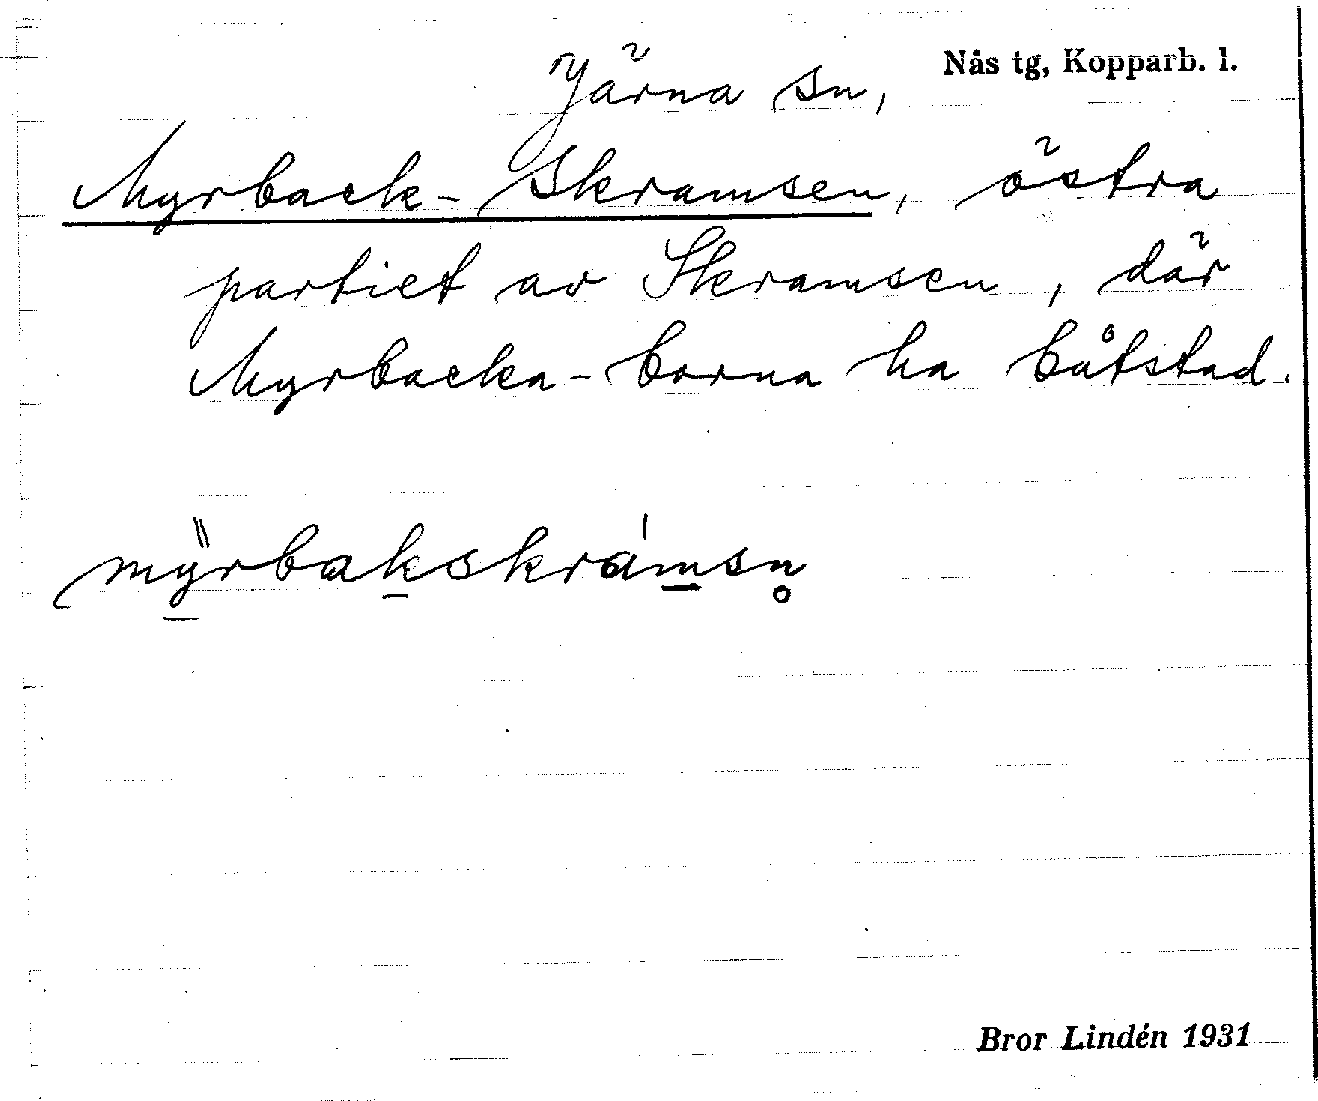 Järna sn, Nås tg, Kopparb. l.
Myrback-Skramsen, östra
partiet av Skramsen, där
Myrbacka-borna ha båtstad.
my̋rbakskrámsn̥
Bror Lindén 1931